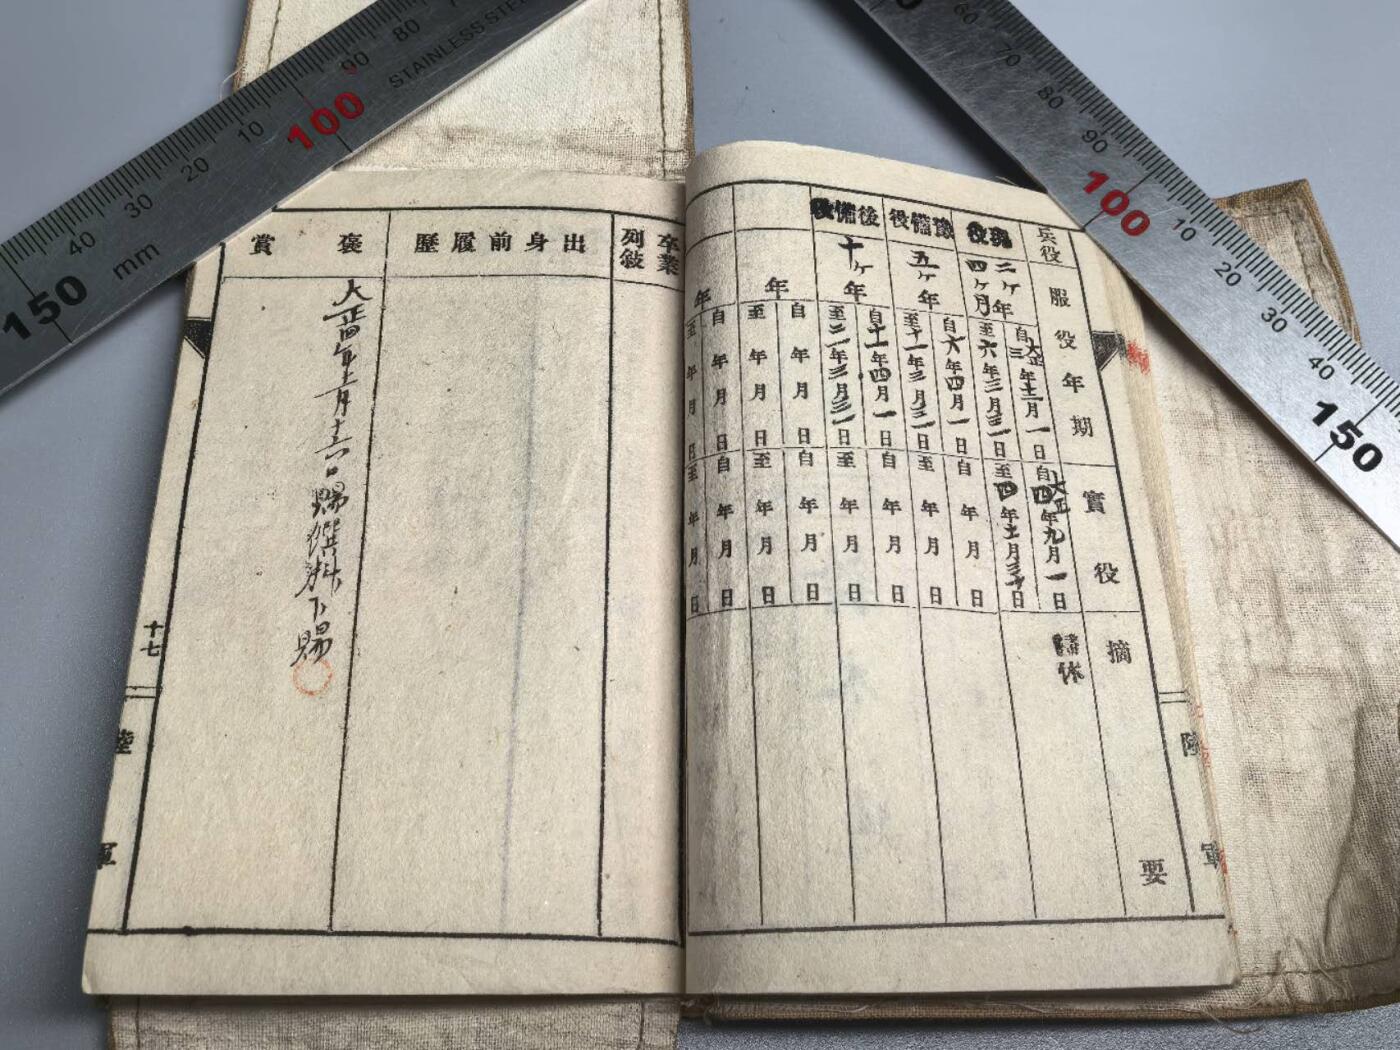 兵役
服役年期
實役
摘要
現役
二ケ年
四ケ月
自大正三年十二月一日
至六年三月三一日
自大正四年九月一日
至四年十一月三十日
帰休
豫備役
五ケ年
自六年四月一日
至十一年三月三一日
自年月日
至年月日
後備役
十ケ年
自十一年四月一日
至二一年三月三一日
自年月日
至年月日
年
自年月日
至年月日
自年月日
至年月日
年
自年月日
至年月日
自年月日
至年月日
陸軍
卒業
列敍
出身前履歷
褒賞
大正四年十一月十六日賜饌料下賜
十七
陸軍
80
90
STAINLESS STE
100
10
20
30
40
mm
150
60
70
80
90
100
10
20
30
40
150